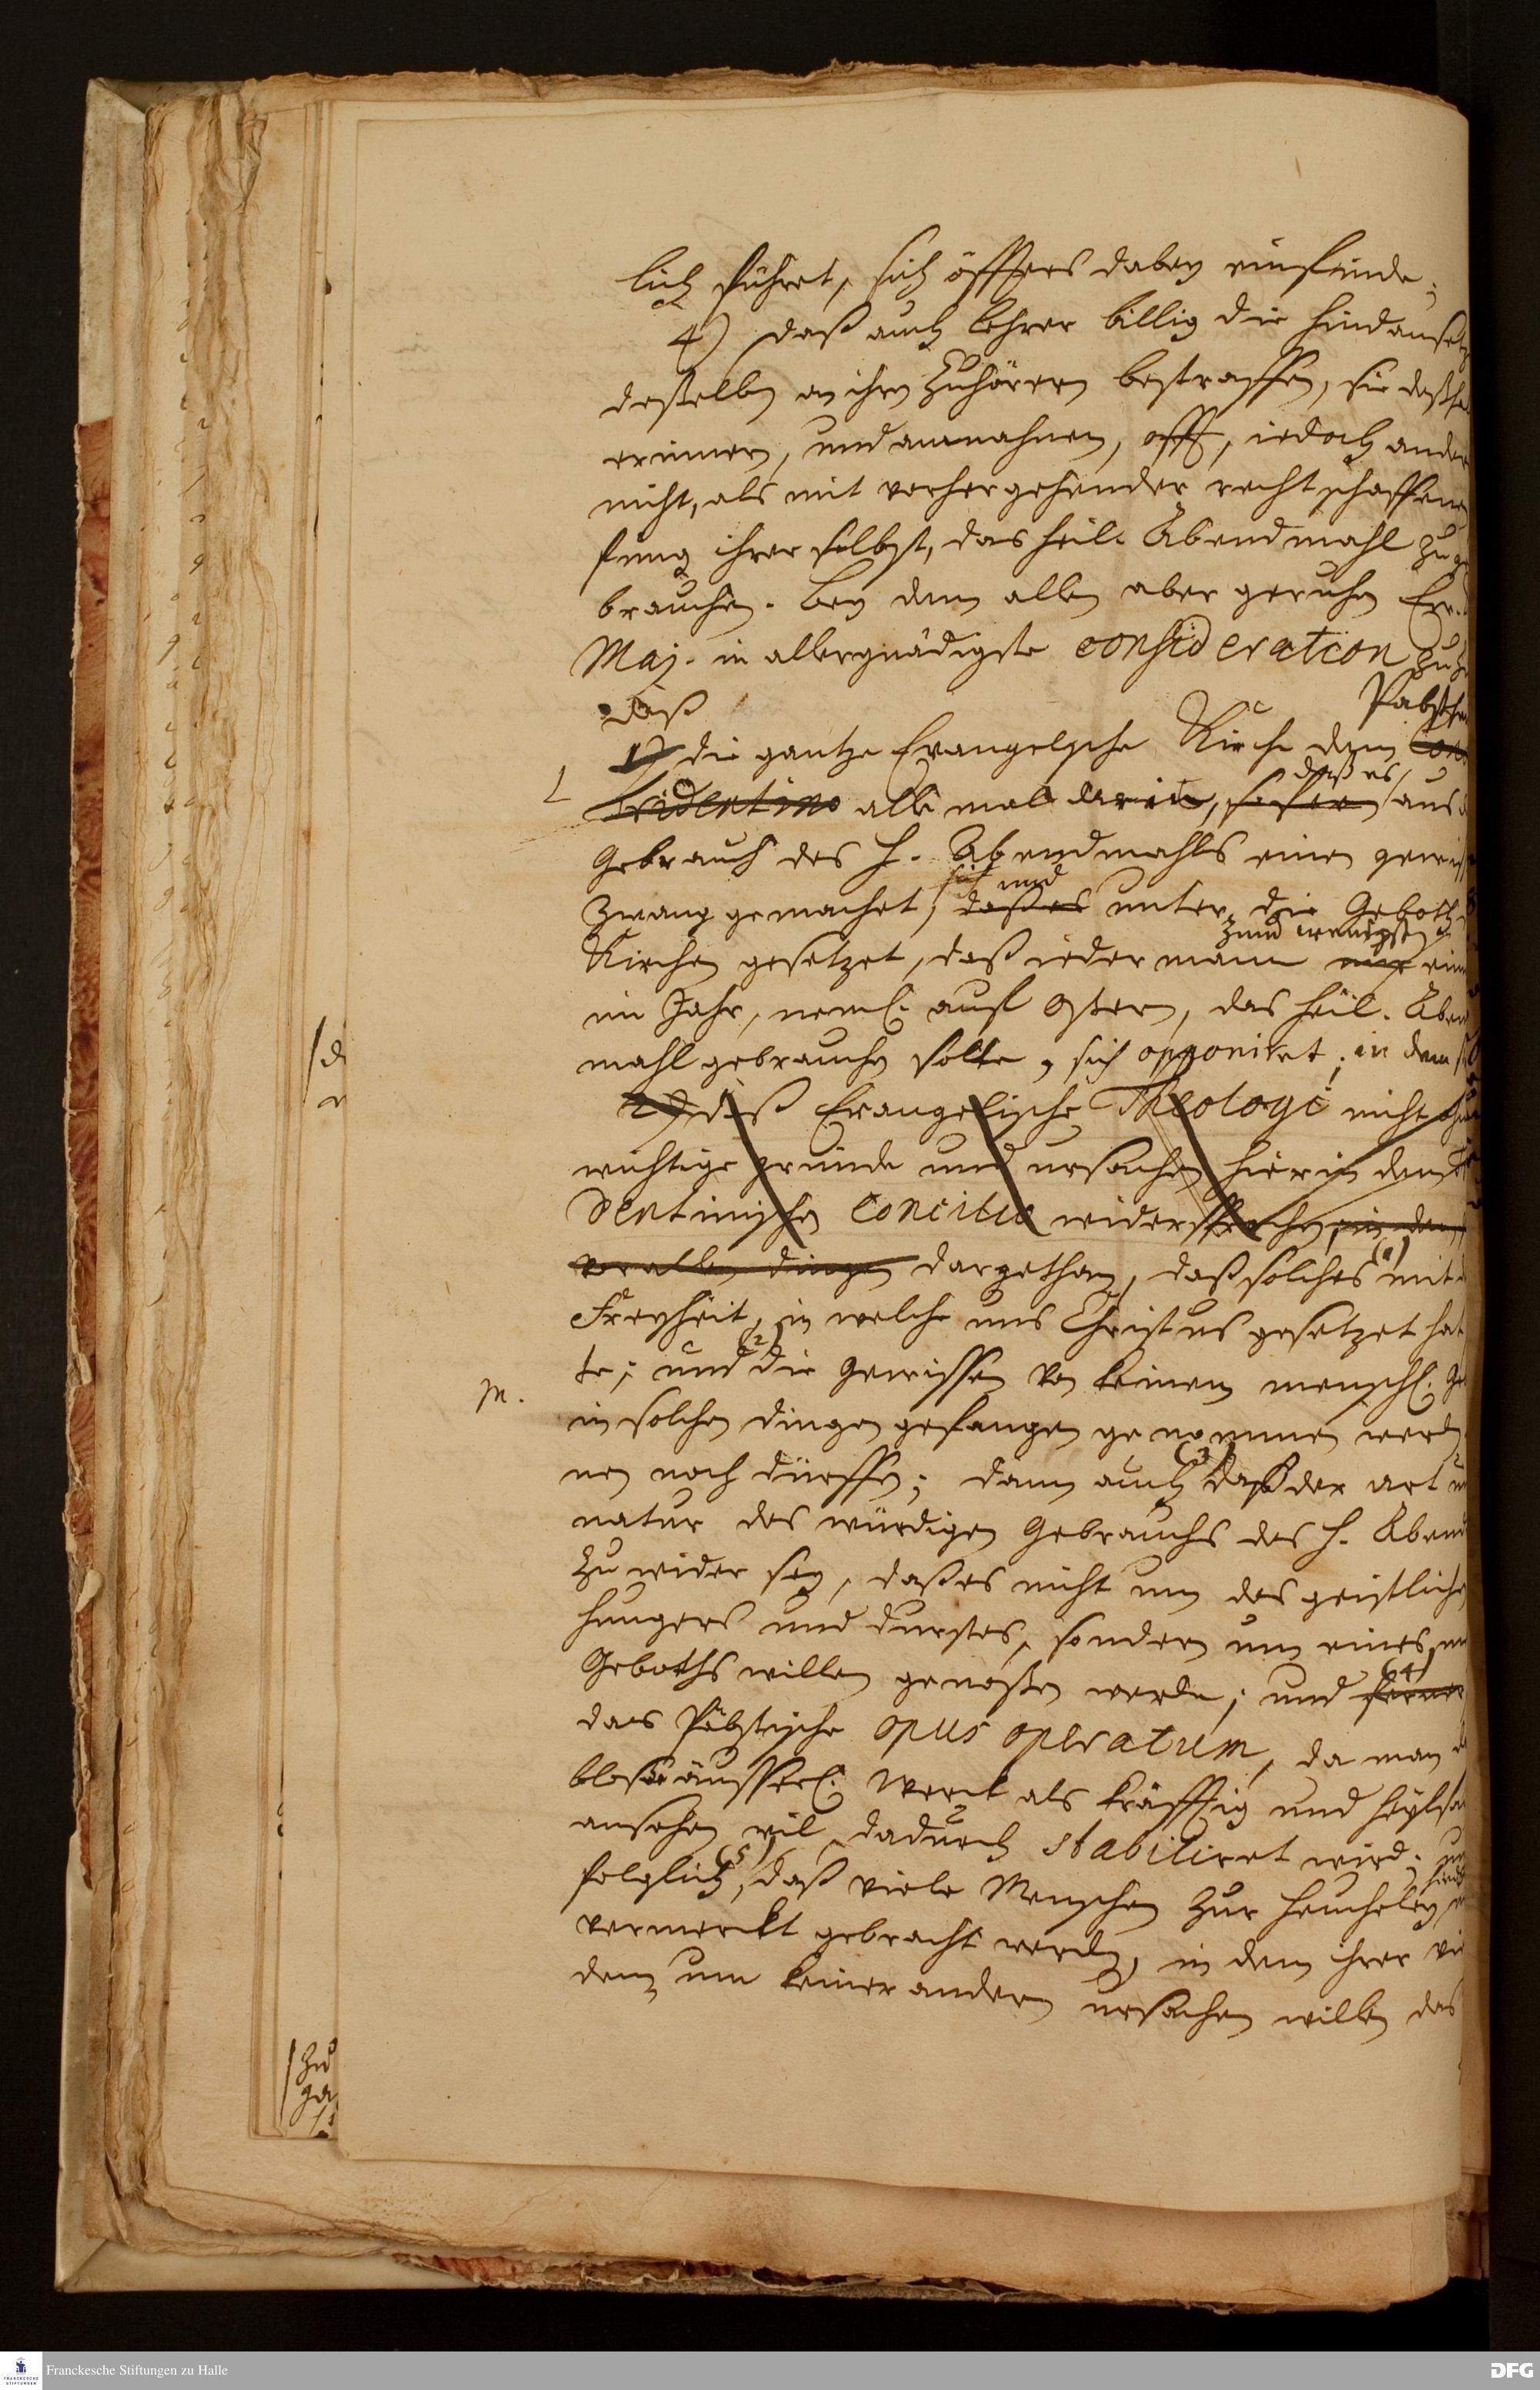 lich führet, sich öffters dabey einfinde;
4) daß auch Lehrer billig die hindanset
deßelben an ihren Zuhörern bestraffen, sie deßhal
erinnern, und anmahnen, offt, iedoch ander
nicht, als mit vorhergehender rechtschaffene
fung ihrer selbst, das heil. Abendmahl zu ge
brauchen. Bey dem allen aber geruhen Ew.
Maj. in allergnädigste consideration zu zi
daß
Pabsth
1) die gantze Evangelische Kirche dem Con
daß es
L Tridentino alle mal darin, sofern aus d
Gebrauch des H. Abendmahls einen gewiß
sich und
Zwang gemachet, daß es unter die Geboth d
zum wenigsten
Kirchen gesetzet, daß iedermann nur ein
im Jahr, neml. auf Ostern, das heil. Aben
mahl gebrauchen solle, sich opponiret; in dem s
2) daß Evangelische Theologi nicht ohn
wichtige gründe und ursachen hierin dem T
dentinischen Concilio widersprochen, in dem
vor allen dingen dargethan, daß solches (1) mit d
Freyheit, in welche uns Christus gesetzet hat
(2)
te; und die Gewissen von keinem menschl. Ge
M.
in solchen dingen gefangen genommen werd
(3)
nen noch dürffen; dann auch daß der art u
natur des würdigen Gebrauchs des H. Abend
zu wider sey, daß es nicht um des geistliche
hungers und durstes, sondern um eines m
Geboths willen genoßen werde; und (4) ferner
das Päbstische opus operatum, da man d
bloße äusserl. Werck als kräfftig und heylsa
ansehen wil, dadurch stabiliret wird; un
folglich (5), daß viele Menschen zur Heucheley
hied
vermerckt gebracht werden, in dem ihrer vi
dem um keiner andern ursachen willen das
/ d
/ zu
ga
Franckesche Stiftungen zu Halle
FRANCKESCHE STIFTUNGEN
DFG